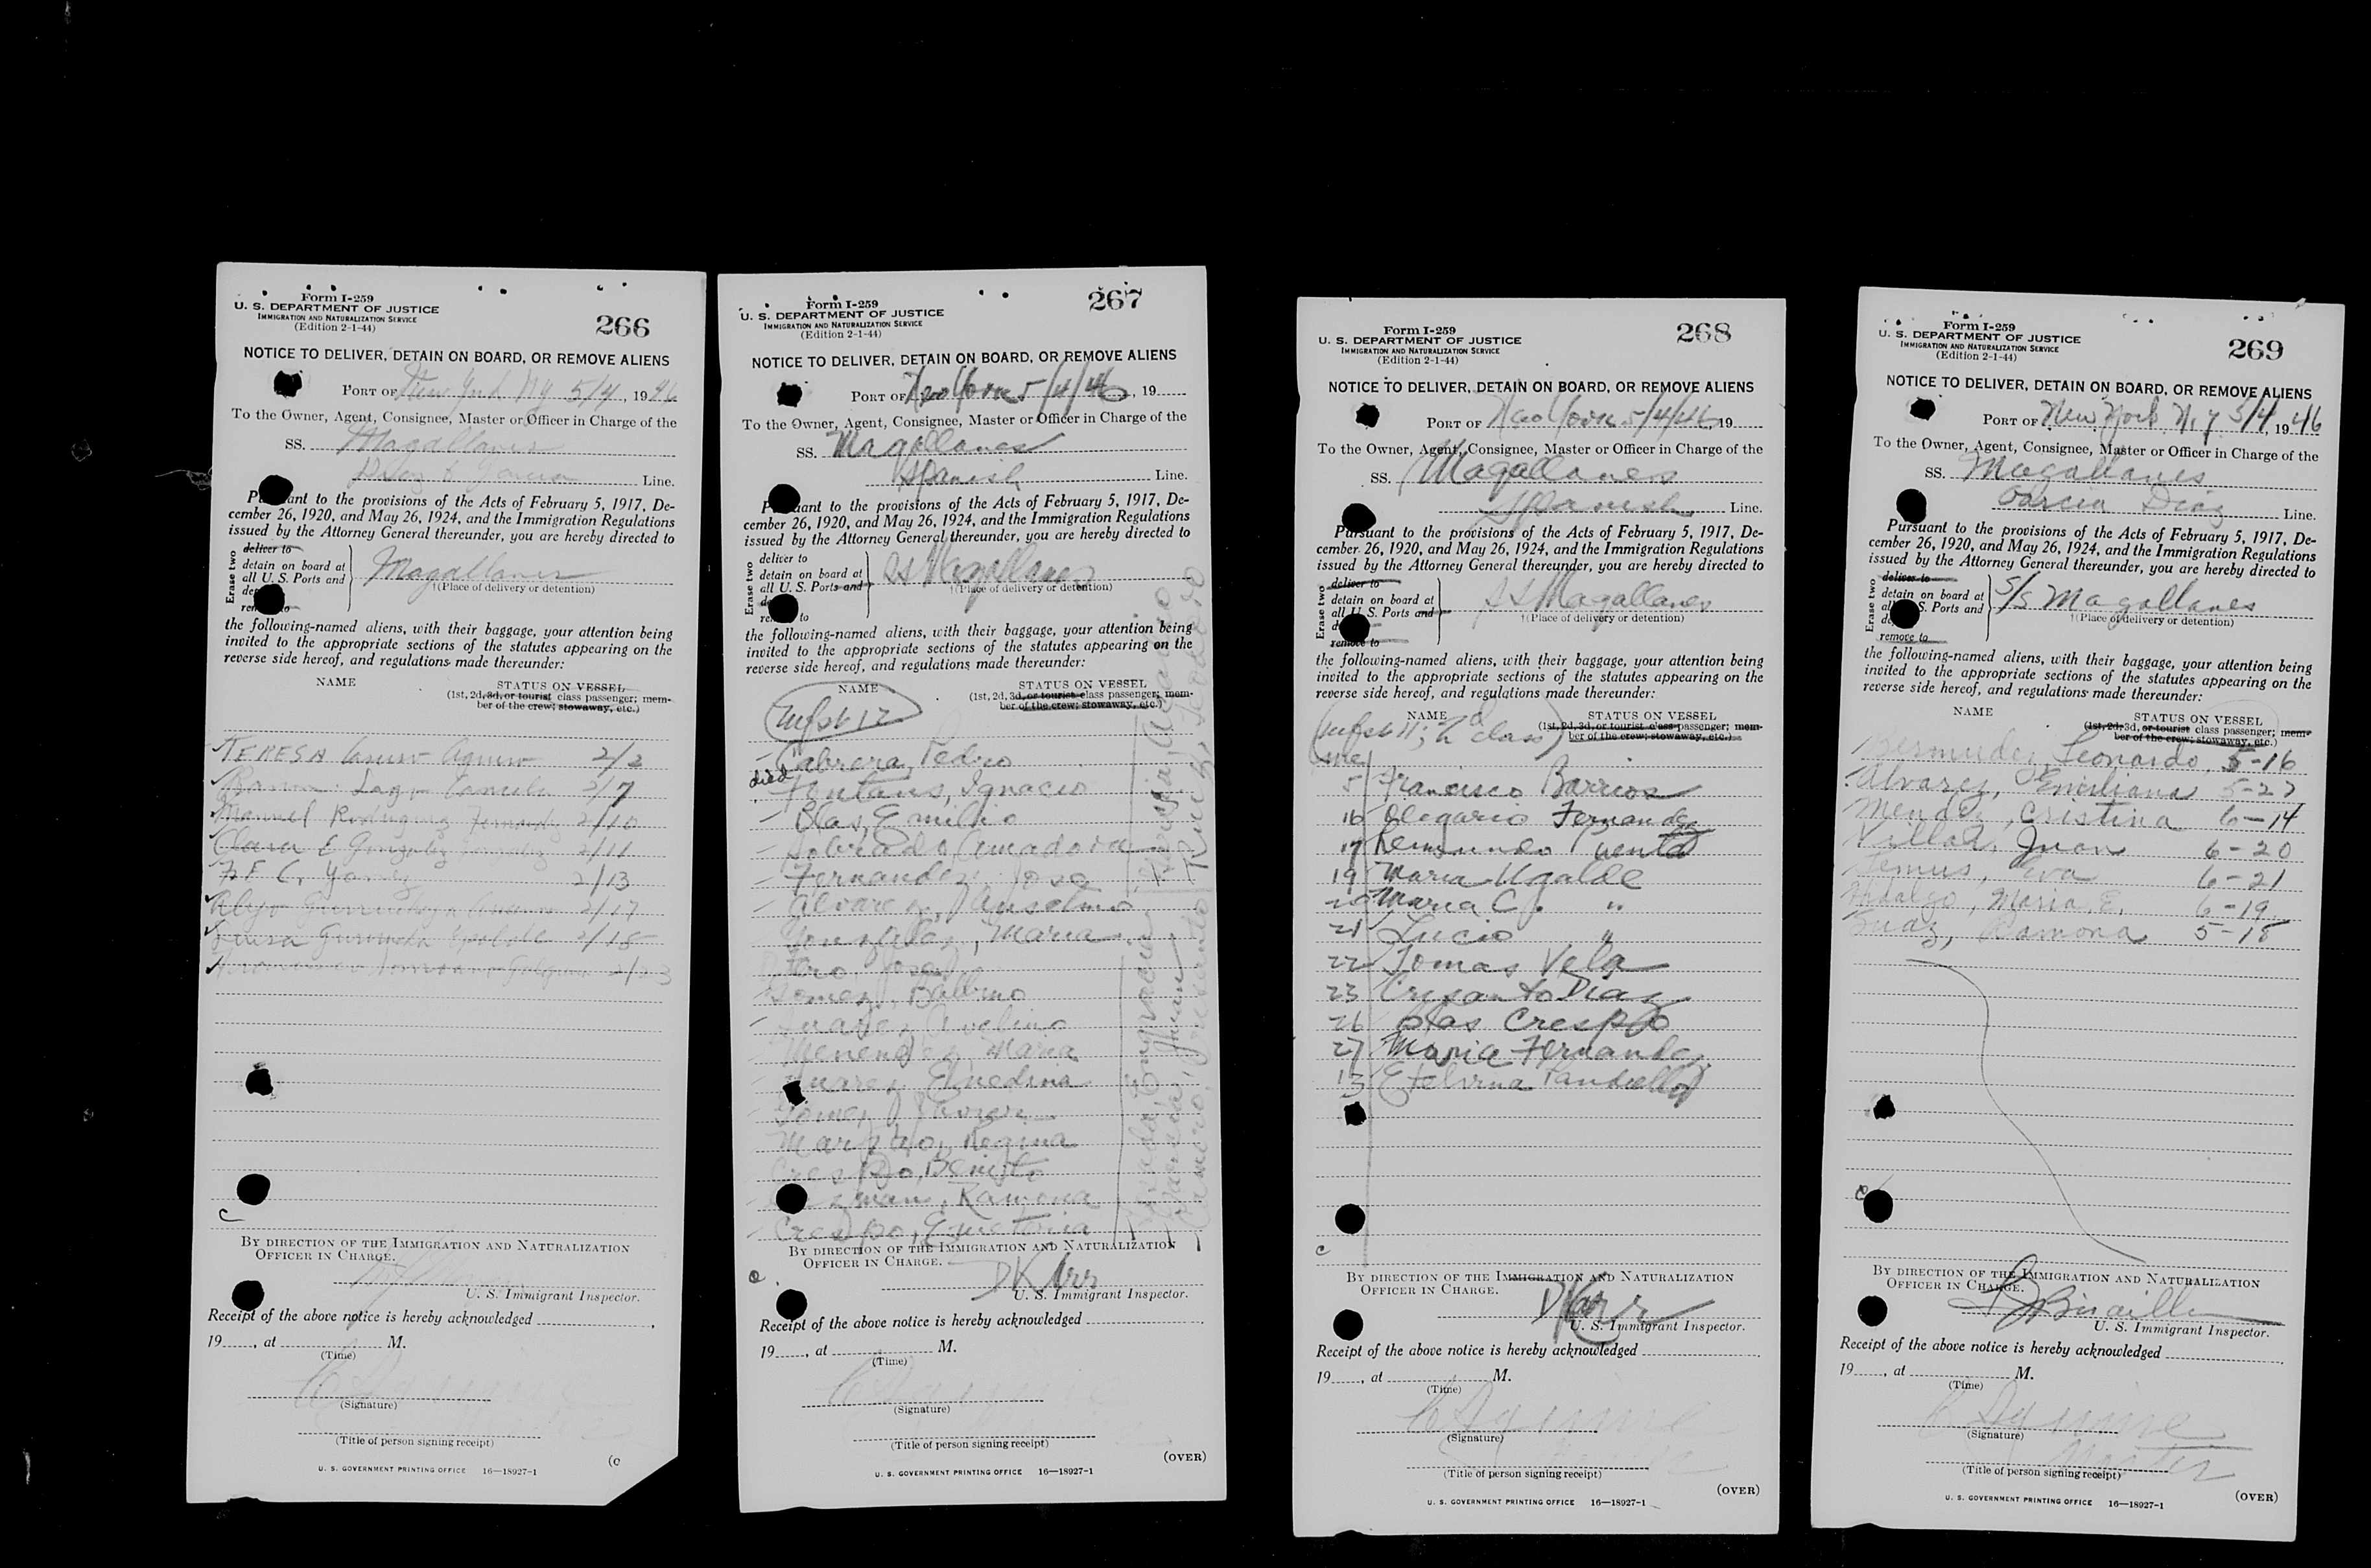 Form I-259
U. S. DEPARTMENT OF JUSTICE
IMMIGRATION AND NATURALIZATION SERVICE
(Edition 2-1-44)
266
NOTICE TO DELIVER, DETAIN ON BOARD, OR REMOVE ALIENS
PORT OF New York NY 5/4, 1946
To the Owner, Agent, Consignee, Master or Officer in Charge of the
SS. Magallanes
Garcia Line.
Pursuant to the provisions of the Acts of February 5, 1917, De-
cember 26, 1920, and May 26, 1924, and the Immigration Regulations
issued by the Attorney General thereunder, you are hereby directed to
Erase two
deliver to
detain on board at
all U. S. Ports and
Magallanes
†(Place of delivery or detention)
the following-named aliens, with their baggage, your attention being
invited to the appropriate sections of the statutes appearing on the
reverse side hereof, and regulations made thereunder:
NAME
STATUS ON VESSEL
(1st, 2d, 3d, or tourist class passenger; mem-
ber of the crew; stowaway, etc.)
TERESA 2/2
2/7
Manuel Rodriguez Fernandez 2/10
Clara E Gonzalez 2/11
2/13
2/17
2/18
2/23
c
BY DIRECTION OF THE IMMIGRATION AND NATURALIZATION
OFFICER IN CHARGE.
U. S. Immigrant Inspector.
Receipt of the above notice is hereby acknowledged
19, at M.
(Time)
(Signature)
(Title of person signing receipt)
U. S. GOVERNMENT PRINTING OFFICE 16—18927-1
Form I-259
U. S. DEPARTMENT OF JUSTICE
IMMIGRATION AND NATURALIZATION SERVICE
(Edition 2-1-44)
267
NOTICE TO DELIVER, DETAIN ON BOARD, OR REMOVE ALIENS
PORT OF New York 5/4/46, 19
To the Owner, Agent, Consignee, Master or Officer in Charge of the
SS. Magallanes
Spanish Line.
Pursuant to the provisions of the Acts of February 5, 1917, De-
cember 26, 1920, and May 26, 1924, and the Immigration Regulations
issued by the Attorney General thereunder, you are hereby directed to
Erase two
deliver to
detain on board at
all U. S. Ports and
remove to
SS Magallanes
†(Place of delivery or detention)
the following-named aliens, with their baggage, your attention being
invited to the appropriate sections of the statutes appearing on the
reverse side hereof, and regulations made thereunder:
NAME
STATUS ON VESSEL
(1st, 2d, 3d, or tourist class passenger; mem-
ber of the crew; stowaway, etc.)
Mfst 12
Cabrera, Pedro
died
Fontans, Ignacio
Blas, Emilio
Sobrado, Amadora
Fernandez, Jose
Alvarez, Anselmo
Gonzalez, Maria
Jose
Gomez, Balbino
Suarez, Avelino
Menendez, Maria
Suarez, Etnedina
Gomez, Javier
Regina
Crespo, Benito
Ramona
Crespo,
BY DIRECTION OF THE IMMIGRATION AND NATURALIZATION
OFFICER IN CHARGE.
D Karr
U. S. Immigrant Inspector.
Receipt of the above notice is hereby acknowledged
19, at M.
(Time)
(Signature)
(Title of person signing receipt)
(OVER)
U. S. GOVERNMENT PRINTING OFFICE 16—18927-1
Form I-259
U. S. DEPARTMENT OF JUSTICE
IMMIGRATION AND NATURALIZATION SERVICE
(Edition 2-1-44)
268
NOTICE TO DELIVER, DETAIN ON BOARD, OR REMOVE ALIENS
PORT OF New York 5/4/46, 19
To the Owner, Agent, Consignee, Master or Officer in Charge of the
SS. Magallanes
Spanish Line.
Pursuant to the provisions of the Acts of February 5, 1917, De-
cember 26, 1920, and May 26, 1924, and the Immigration Regulations
issued by the Attorney General thereunder, you are hereby directed to
Erase two
deliver to
detain on board at
all U. S. Ports and
remove to
SS Magallanes
†(Place of delivery or detention)
the following-named aliens, with their baggage, your attention being
invited to the appropriate sections of the statutes appearing on the
reverse side hereof, and regulations made thereunder:
NAME
STATUS ON VESSEL
(1st, 2d, 3d, or tourist class passenger; mem-
ber of the crew; stowaway, etc.)
Mfst 11; 2d class
line
5 Francisco Barrios
16 Olegario Fernandez
17 Remundo Puente
19 Maria Ugalde
20 Maria C. "
21 Lucio "
22 Tomas Vela
23 Crisanto Diaz
26 Blas Crespo
27 Maria Fernandez
13 Etelvina
c
BY DIRECTION OF THE IMMIGRATION AND NATURALIZATION
OFFICER IN CHARGE.
D Karr
U. S. Immigrant Inspector.
Receipt of the above notice is hereby acknowledged
19, at M.
(Time)
(Signature)
(Title of person signing receipt)
(OVER)
U. S. GOVERNMENT PRINTING OFFICE 16—18927-1
Form I-259
U. S. DEPARTMENT OF JUSTICE
IMMIGRATION AND NATURALIZATION SERVICE
(Edition 2-1-44)
269
NOTICE TO DELIVER, DETAIN ON BOARD, OR REMOVE ALIENS
PORT OF New York N.Y 5/4, 1946
To the Owner, Agent, Consignee, Master or Officer in Charge of the
SS. Magallanes
Garcia Diaz Line.
Pursuant to the provisions of the Acts of February 5, 1917, De-
cember 26, 1920, and May 26, 1924, and the Immigration Regulations
issued by the Attorney General thereunder, you are hereby directed to
Erase two
deliver to
detain on board at
all U. S. Ports and
remove to
S/S Magallanes
†(Place of delivery or detention)
the following-named aliens, with their baggage, your attention being
invited to the appropriate sections of the statutes appearing on the
reverse side hereof, and regulations made thereunder:
NAME
STATUS ON VESSEL
(1st, 2d, 3d, or tourist class passenger; mem-
ber of the crew; stowaway, etc.)
Bermudez, Leonardo, 5-16
Alvarez, Emiliana 5-27
Mendez, Cristina 6-14
Villar, Juan 6-20
Lemus, Eva 6-21
Hidalgo, Maria E. 6-19
Ramona 5-18
BY DIRECTION OF THE IMMIGRATION AND NATURALIZATION
OFFICER IN CHARGE.
U. S. Immigrant Inspector.
Receipt of the above notice is hereby acknowledged
19, at M.
(Time)
(Signature)
Master
(Title of person signing receipt)
(OVER)
U. S. GOVERNMENT PRINTING OFFICE 16—18927-1